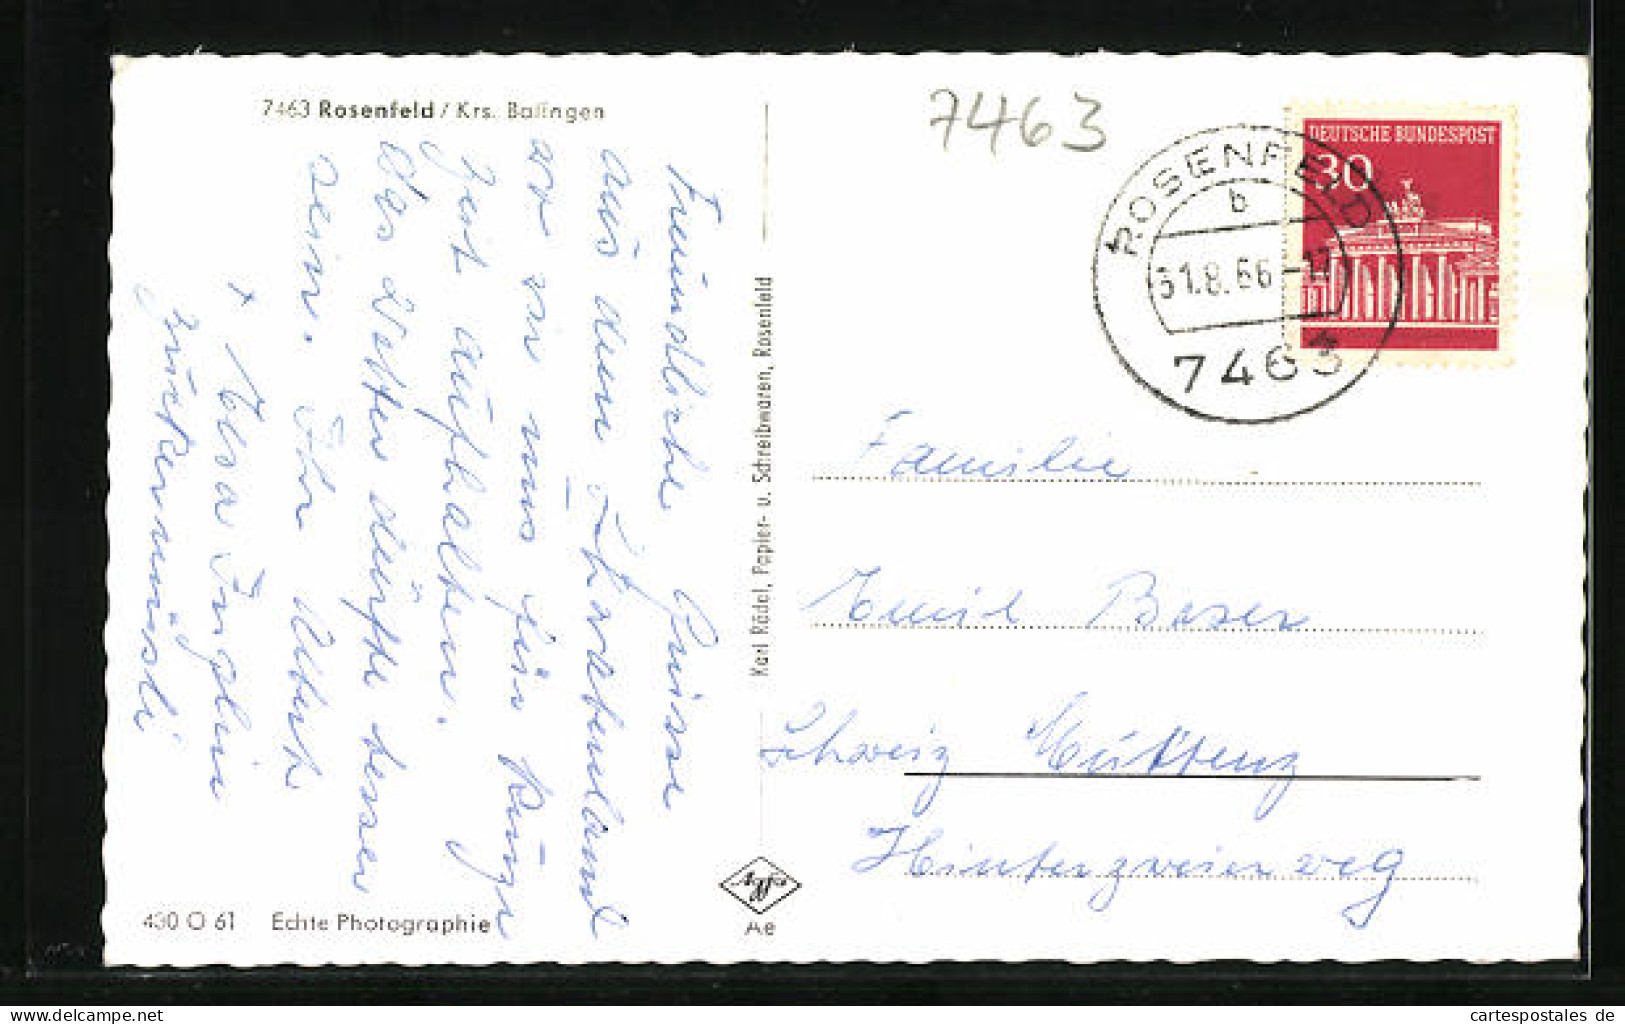 7463 Rosenfeld / Krs. Balingen
Freundliche Grüsse
aus dem
wo wir uns für kurze
Zeit aufhalten.
Das Wetter dürfte besser
sein. Ihr
Karl Rädel, Papier- u. Schreibwaren, Rosenfeld
430 O 61 Echte Photographie
Agfa
Ae
7463
DEUTSCHE BUNDESPOST
30
ROSENFELD
b
31.8.66-17
7463
Familie
Emil Beser
Schweiz Muttenz
weg
cartespostales.de